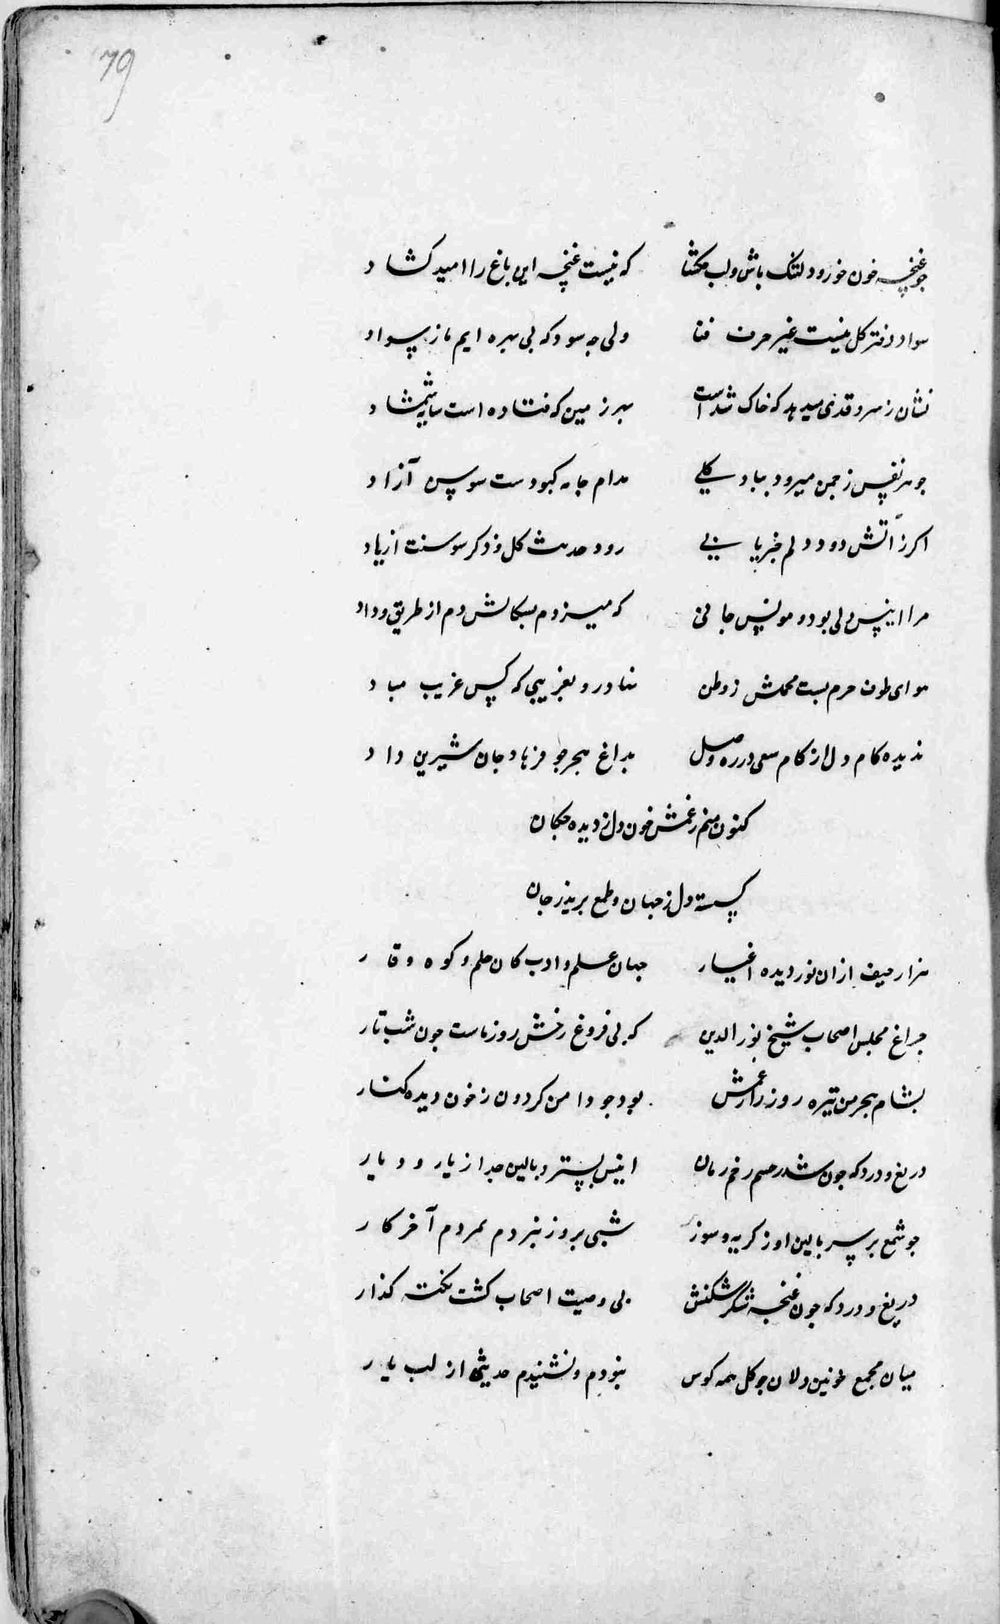 79
چو غنچه خون خور و دلتنک باش و لب مکشا که نیست غنچه این باغ را امید کشاد
سواد دفتر کل نیست غیر حرف فنا ولی چه سود که بی بهره ایم ما ز سواد
نشان ز سرو قدی میدهد که خاک شد است بهر زمین که فتاده است سایه شمشاد
چو هر نفس ز چمن میرود بباد کلی مدام جامه کبودست سوسن آزاد
اکر ز آتش دود دلم خبر یابی رود حدیث کل و ذکر سوسنت از یاد
مرا انیس دلی بود و مونس جانی که میزدم بسکالش دم از طریق وداد
هوای طوف حرم بست محملش ز وطن فتاد رو بغریبی که کس غریب مباد
ندیده کام دل از کام سعی در ره وصل بداغ هجر چو فرهاد جان شیرین داد
کنون منم ز غمش خون دل ز دیده چکان
کسسته دل ز جهان و طمع بریده ز جان
هزار حیف از ان نور دیده اخیار جهان علم و ادب کان حلم و کوه وقار
چراغ مجلس اصحاب شیخ نور الدین که بی فروغ رخش روز ماست چون شب تار
بشام هجر من تیره روز را ز غمش بود چو دامن کردون ز خون دیده کنار
دریغ و درد که چون شد ز چشم زخم زمان انیس بستر و بالین جدا ز یار و دیار
چو شمع بر سر بالین او ز کریه و سوز شبی بروز نبردم نمردم آخر کار
دریغ و درد که چون غنچه شکر شکنش بی وصیت اصحاب کشت نکته کذار
میان مجمع خونین دلان چو کل همه کوش نبودم و نشنیدم حدیثی از لب یار